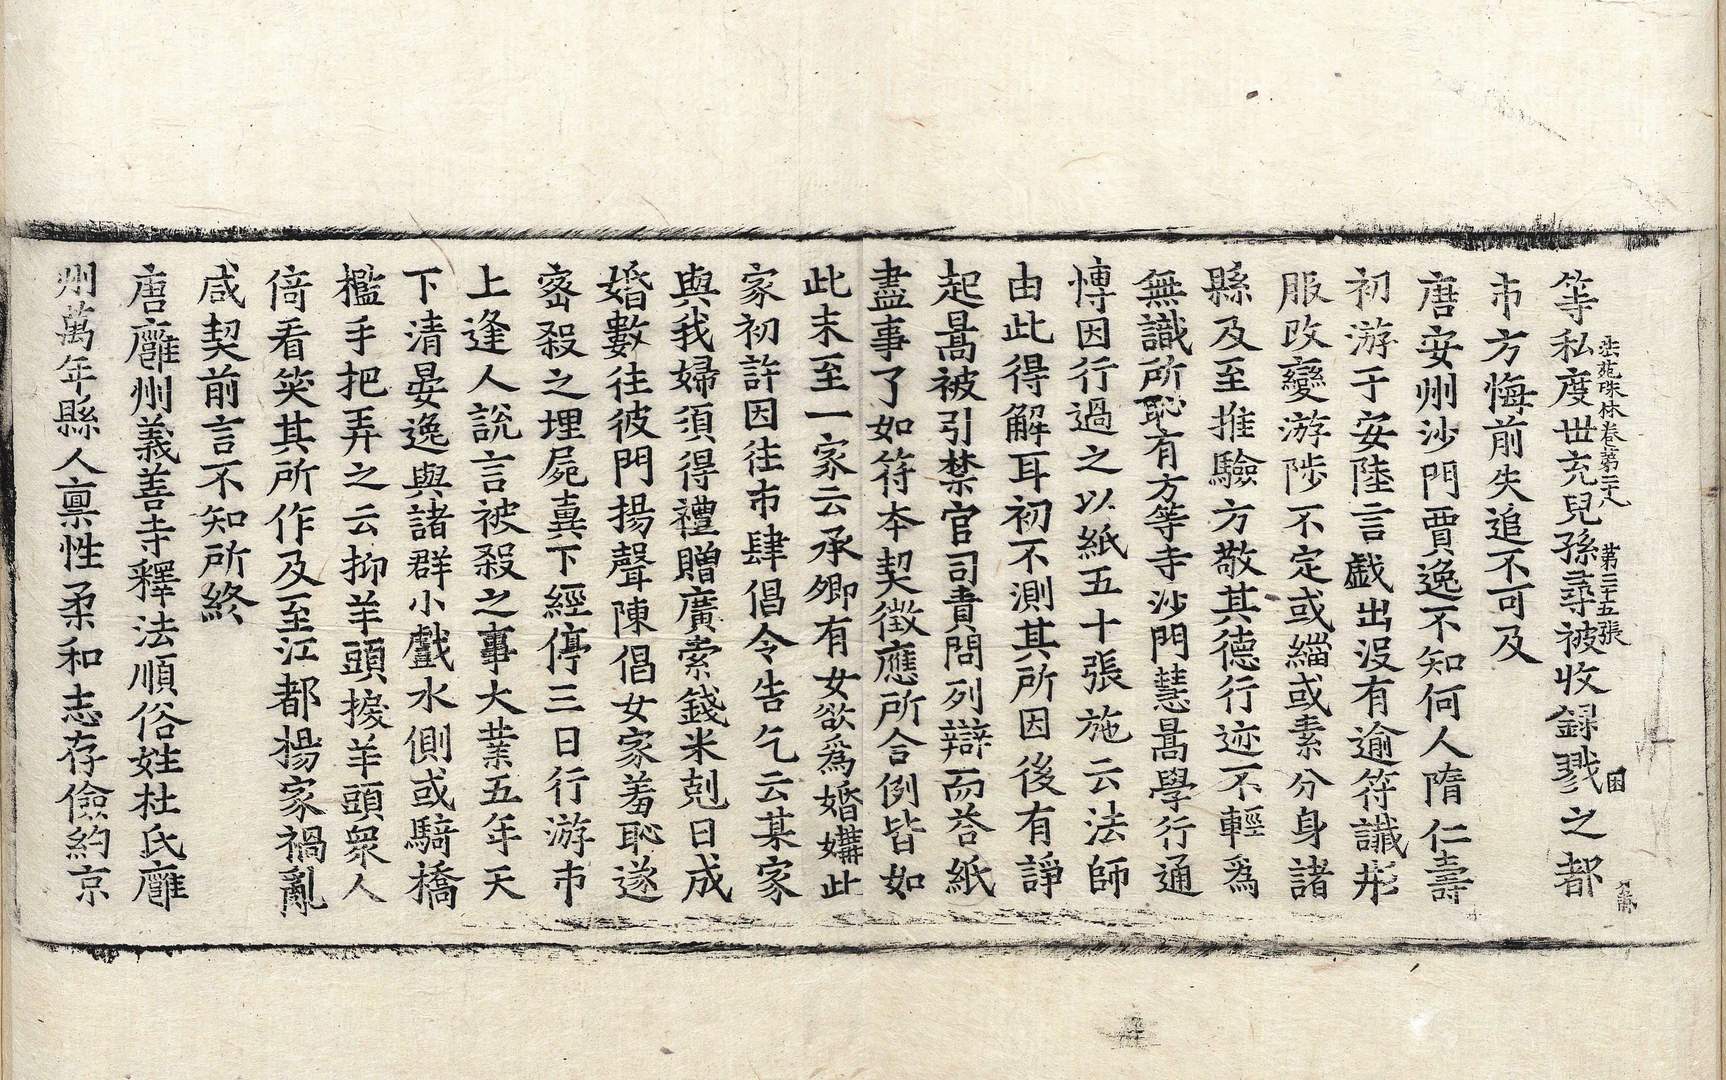 等私度世充兒孫尋被收録戮之都
法苑珠林卷第二十八 第三十五張 困
市方悔前失追不可及
唐安州沙門賈逸不知何人隋仁壽
初游于安陸言戱出没有逾符讖形
服改變游陟不定或緇或素分身諸
縣及至推驗方敬其德行迹不輕爲
無識所恥有方等寺沙門慧暠學行通
慱因行過之以紙五十張施云法師
由此得解耳初不測其所因後有諍
起暠被引禁官司責問列辯而荅紙
盡事了如符本契徴應所合例皆如
此末至一家云承卿有女欲爲婚媾此
家初許因往市肆倡令告乞云某家
與我婦須得禮贈廣索錢米剋日成
婚數往彼門揚聲陳倡女家羞恥遂
宻殺之埋屍糞下經停三日行游市
上逢人説言被殺之事大業五年天
下清晏逸與諸群小戲水側或騎橋
檻手把弄之云抑羊頭捩羊頭衆人
倚看笑其所作及至江都揚家禍亂
咸契前言不知所終
唐雍州義善寺釋法順俗姓杜氏雍
州萬年縣人禀性柔和志存儉約京